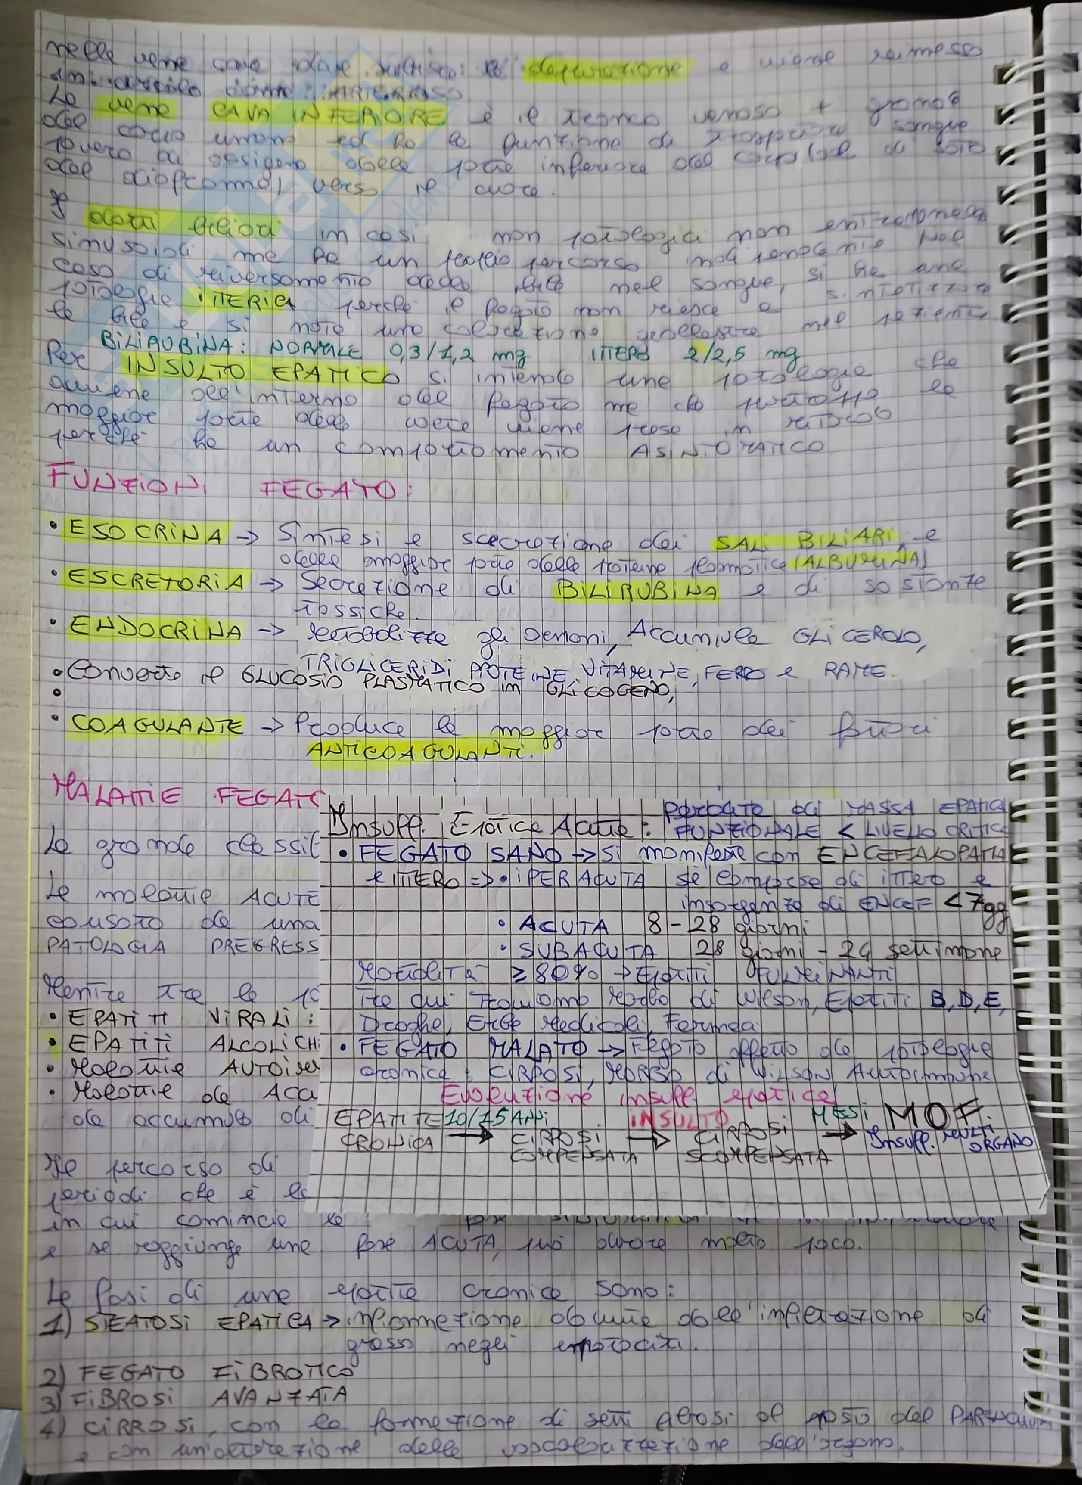 nelle vene cave dove subisce la depurazione e viene reimmesso
La vena CAVA INFERIORE è il tronco venoso + grande
del corpo umano ed ha la funzione di trasportare sangue
povero di ossigeno dalla parte inferiore del corpo, al di sotto
del diaframma, verso il cuore.
I dotti biliari in casi non patologia non entrano nei
sinusoidi ma ha un percorso indipendente. Nel
caso di riversamento della bile nel sangue, si ha una
patologia ITTERICA perché il fegato non riesce a sintetizzare
la bile e si nota una colorazione giallastra nel paziente
BILIRUBINA: NORMALE 0,3/1,2 mg ITTERO 2/2,5 mg
Per INSULTO EPATICO si intende una patologia che
avviene all'interno del fegato ma che purtroppo la
maggior parte delle volte viene presa in ritardo
perché ha un comportamento ASINTOMATICO
FUNZIONI FEGATO:
• ESOCRINA -> Sintesi e secrezione dei SALI BILIARI, e
della maggior parte delle proteine plasmatica (ALBUMINA)
• ESCRETORIA -> Secrezione di BILIRUBINA e di sostanze
tossiche.
• ENDOCRINA -> Metabolizza gli ormoni, Accumula GLICEROLO,
TRIGLICERIDI, PROTEINE, VITAMINE, FERRO e RAME.
• Converte il GLUCOSIO PLASMATICO in GLICOGENO,
• COAGULANTE -> Produce la maggior parte dei fattori
ANTICOAGULANTI.
MALATTIE FEGATO
La grande classif
Le malattie ACUTE
causato da una
PATOLOGIA PREGRESS
Mentre tra le
• EPATITI VIRALI:
• EPATITI ALCOLICHE
• Malattie AUTOIM
• Malattie da Accu
da accumulo di
Insuff. Epatica Acuta: Perdita di MASSA EPATICA
FUNZIONALE < LIVELLO CRITICO
• FEGATO SANO -> si manifesta con ENCEFALOPATIA
e ITTERO => • IPERACUTA se comparsa di ittero e
insorgenza di ENCEF < 7gg
• ACUTA 8-28 giorni
• SUBACUTA 28 giorni - 24 settimane
Mortalità ≥80% -> Epatiti FULMINANTI
Tra cui troviamo Morbo di Wilson, Epatiti B, D, E,
Droghe, Erbe Medicali, Farmaci
• FEGATO MALATO -> Fegato affetto da patologie
cronica: CIRROSI, MORBO di Wilson Autoimmune
Evoluzione insuff epatica
EPATITE 10/15 ANNI INSULTO MESI MOF.
CRONICA -> CIRROSI -> CIRROSI -> Insuff. MULTI ORGANO
COMPENSATA SCOMPENSATA
Il percorso di
periodi che è la
in cui comincia la
e se raggiunge una fase ACUTA, può durare molto poco.
Le fasi di una epatite cronica sono:
1) STEATOSI EPATICA -> infiammazione dovuta dall'infiltrazione di
grasso negli epatociti.
2) FEGATO FIBROTICO
3) FIBROSI AVANZATA
4) CIRROSI, con la formazione di setti fibrosi al posto del PARENCHIMA
e con un'alterazione della vascolarizzazione dell'organo.